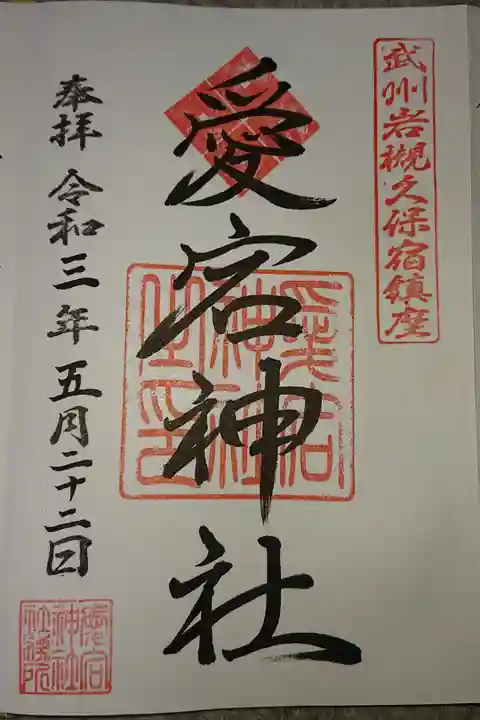 武州岩槻久保宿鎮座
愛宕神社
愛宕神社之印
奉拝 令和三年五月二十二日
愛宕神社務所